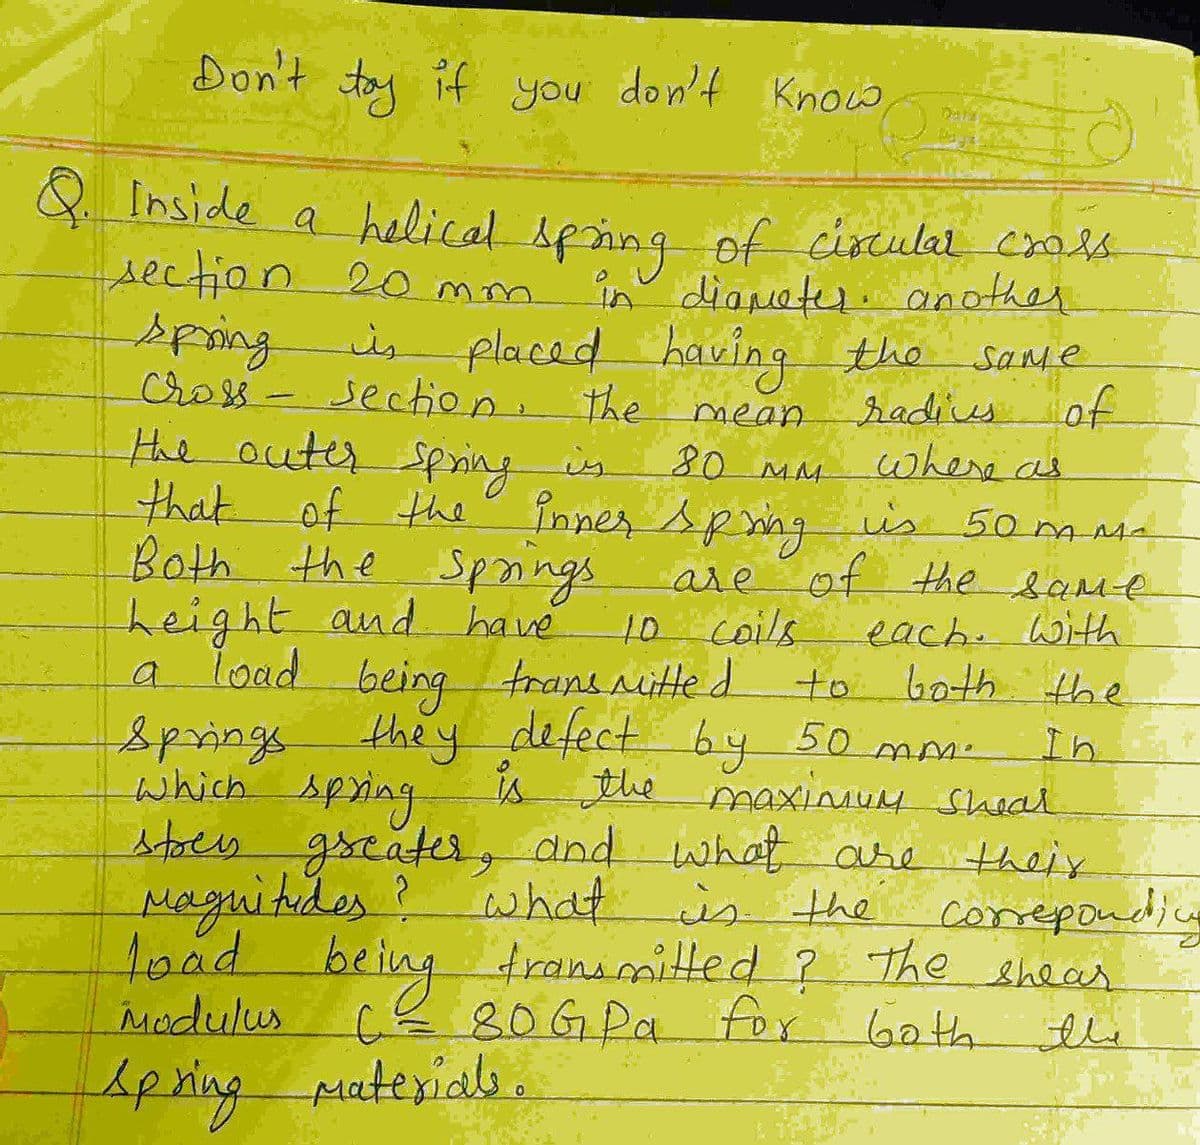 Don't try if you don't Know
Date
Page
Q. Inside a helical spring of circular cross
section 20 mm in diameter. another
spring is placed having the same
cross - section. the mean radius of
the outer spring is 80 MM where as
that of the inner spring is 50 mm.
Both the springs are of the same
height and have 10 coils each. With
a load being transmitted to both the
springs they defect by 50 mm. In
which spring is the maximum shear
stress greater, and what are their
Magnitudes? what is the correpondicg
load being transmitted ? The shear
Modulus C = 80 GPa for both the
spring materials.